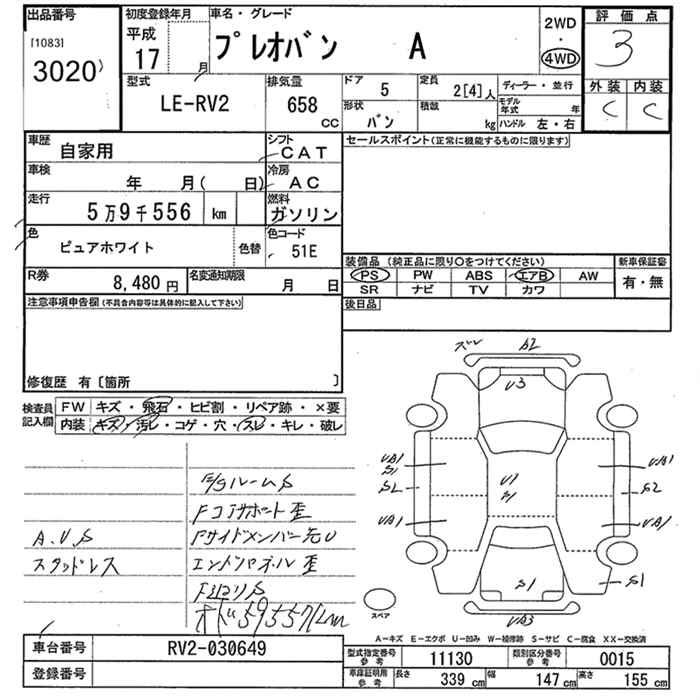 出品番号
[1083]
3020
初度登録年月
平成
17 月
車名・グレード
プレオバン A
2WD
・
4WD
評価点
3
外装 内装
C C
型式
LE-RV2
排気量
658 cc
ドア
5
定員
2[4]人
ディーラー・並行
モデル年式 年
形状
バン
積載
kg
ハンドル 左・右
車歴
自家用
シフト
CAT
セールスポイント(正常に機能するものに限ります)
車検
年 月( 日)
冷房
AC
走行
5万9千556 km
燃料
ガソリン
色
ピュアホワイト
色替
色コード
51E
装備品(純正品に限り○をつけてください)
PS PW ABS エアB AW
SR ナビ TV カワ
新車保証書
有・無
R券
8,480 円
名変通知期限
月 日
後日品
注意事項申告欄(不具合内容等は具体的に記入して下さい)
修復歴 有〔箇所 〕
検査員記入欄
FW キズ・飛石・ヒビ割・リペア跡・×要
内装 キズ・汚レ・コゲ・穴・スレ・キレ・破レ
E/Gルーム S
Fコアサポート歪
A.V.S
Fサイドメンバー先U
スタッドレス
エンドパネル歪
S2
U3
UA1
S1
U1
S1
UA1
S2
UA1
UA1
S1
S1
UA3
スペア
A-キズ E-エクボ U-凹み W-補修跡 S-サビ C-腐食 XX-交換済
車台番号
RV2-030649
登録番号
型式指定番号 参考
11130
類別区分番号 参考
0015
車庫証明用 参考
長さ 339 cm
幅 147 cm
高さ 155 cm